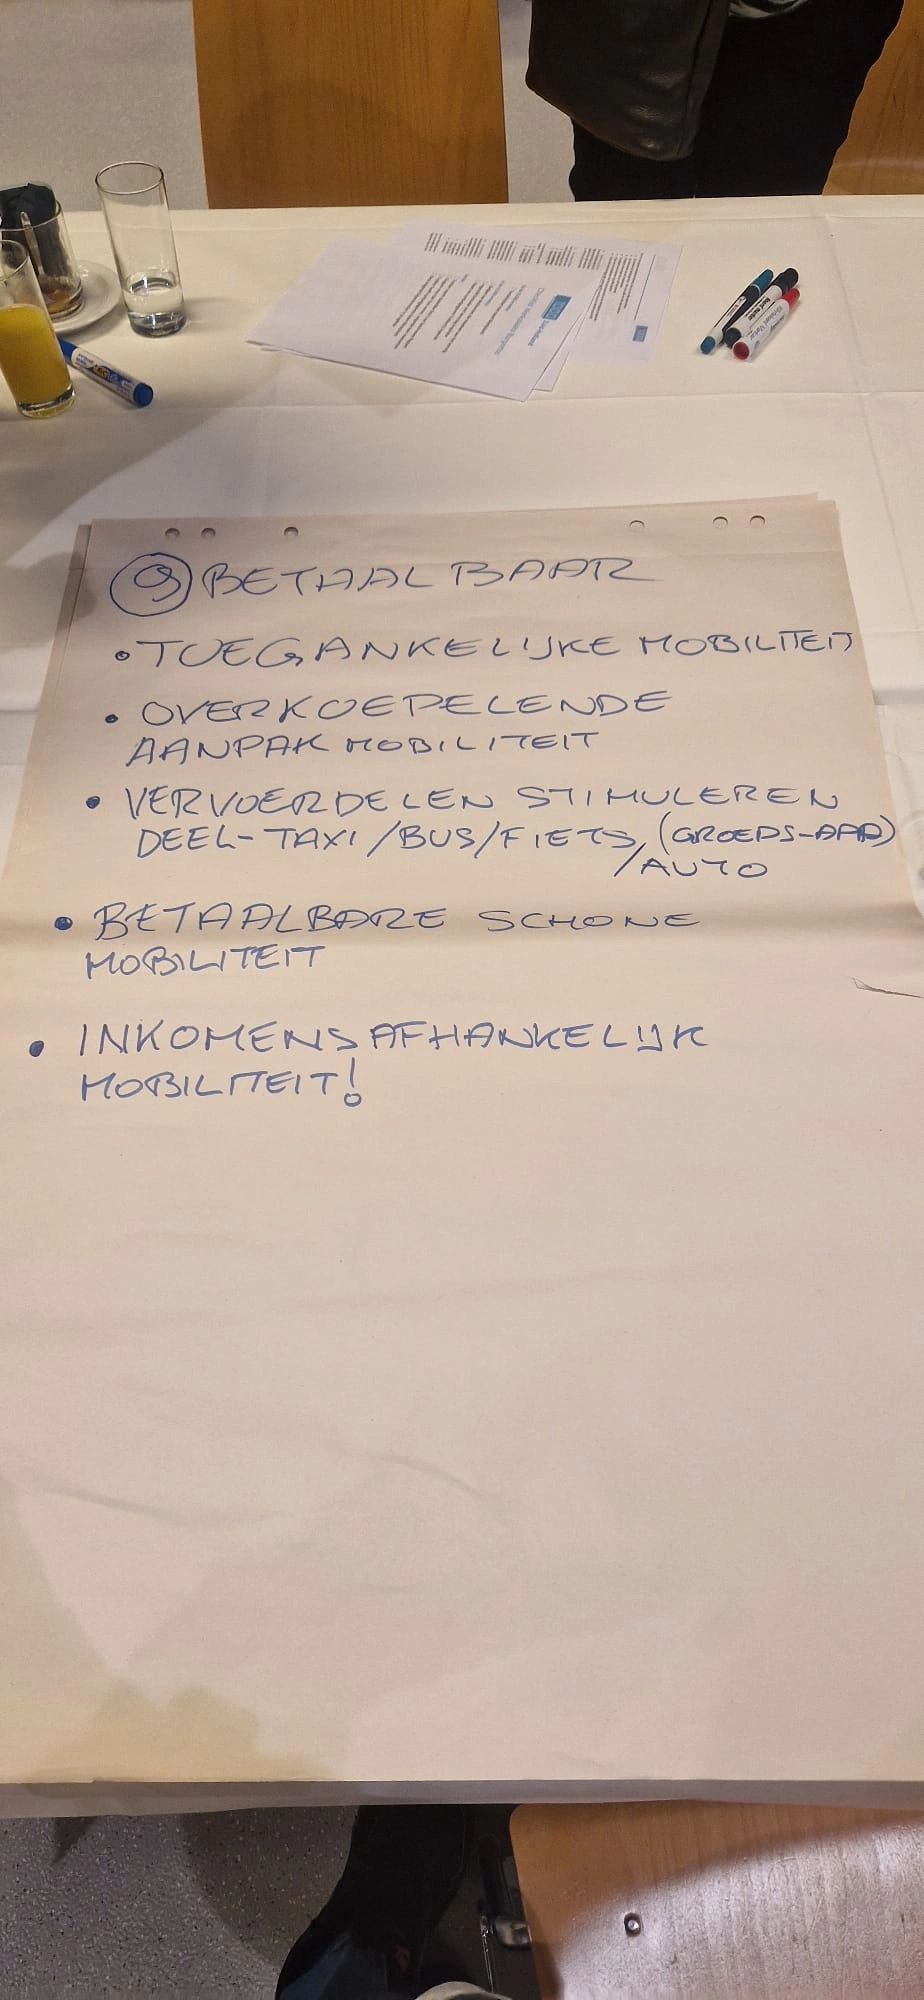 9 BETAALBAAR
• TOEGANKELIJKE MOBILITEIT
• OVERKOEPELENDE
AANPAK MOBILITEIT
• VERVOERDELEN STIMULEREN
DEEL-TAXI/BUS/FIETS (GROEPS-APP)
/AUTO
• BETAALBARE SCHONE
MOBILITEIT
• INKOMENSAFHANKELIJK
MOBILITEIT!